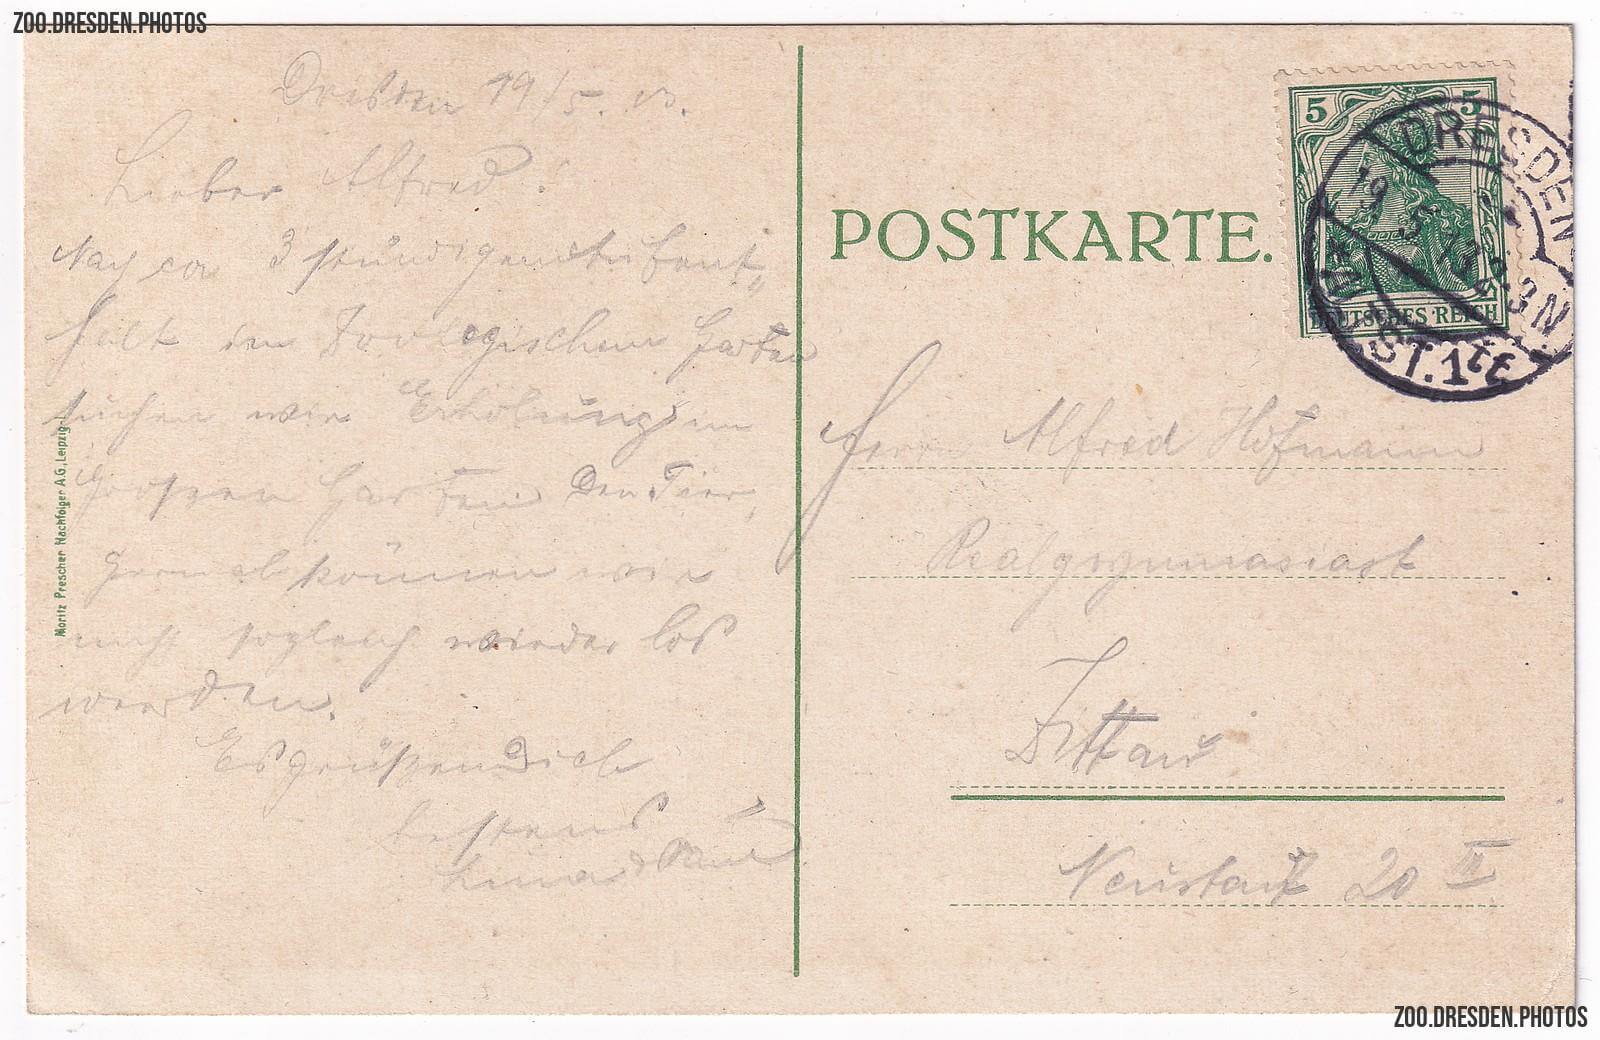 ZOO.DRESDEN.PHOTOS
Dresden 19/5. 13.
Lieber Alfred!
Nach ca 3 stündigem Aufent„
halt im Zoologischen Garten
suchen wir Erholung im
Grossen Garten. Den Tier„
können wir
nicht sogleich wieder los
werden.
Es grüßen Dich
bestens
Lina & Paul
Moritz Prescher Nachfolger A.G., Leipzig
POSTKARTE.
5 5
DEUTSCHES REICH
DRESDEN
19 5 13
2-3N
ALTST. 1
Herrn Alfred Hofmann
Realgymnasiast
Zittau
Neustadt 20 II
ZOO.DRESDEN.PHOTOS